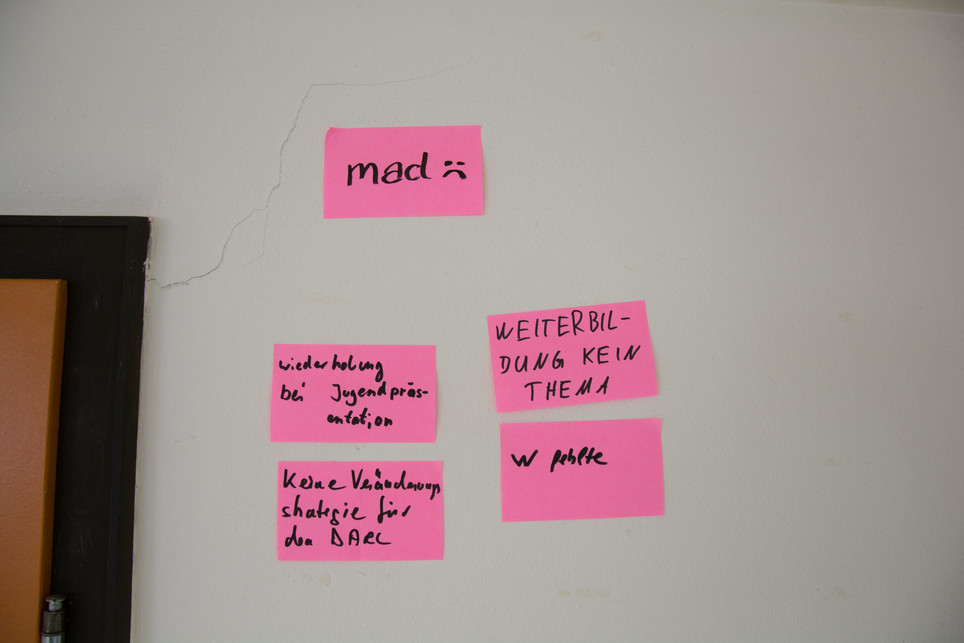 mad :(
wiederholung
bei Jugendpräs-
entation
Keine Veränderungs
strategie für
den DARC
WEITERBIL-
DUNG KEIN
THEMA
W fehlte